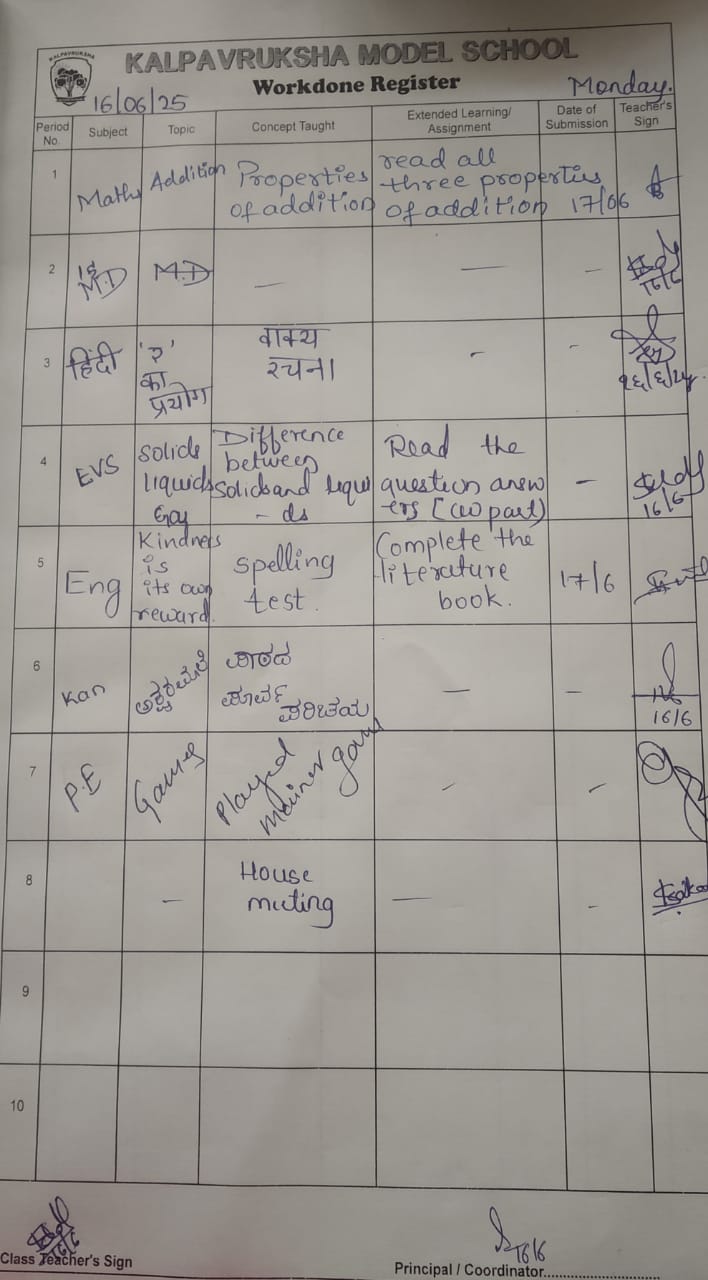 KALPAVRUKSHA
KALPAVRUKSHA MODEL SCHOOL
Workdone Register
16/06/25
Monday.
Period No. Subject Topic Concept Taught Extended Learning/ Assignment Date of Submission Teacher's Sign
1 Maths Addition Properties of addition read all three properties of addition 17/06
2 M.D M.D — — – 16/6
3 हिंदी 'र' का प्रयोग वाक्य रचना - - १६/६/२५.
4 EVS Solids liquids Difference between Solids and liqui – ds Read the question answ ers [CW part] – 16/6
5 Eng Kindness is its own reward. Spelling test. Complete the literature book. 17/6
6 Kan ಅಕ್ಷರಮಾಲೆ ಪಾಠದ ಪೂರ್ವ ಪರಿಚಯ — – 16/6
7 P.E Games Played game – –
8 – House meeting — –
9
10
16/6
16/6
Class Teacher's Sign
Principal / Coordinator